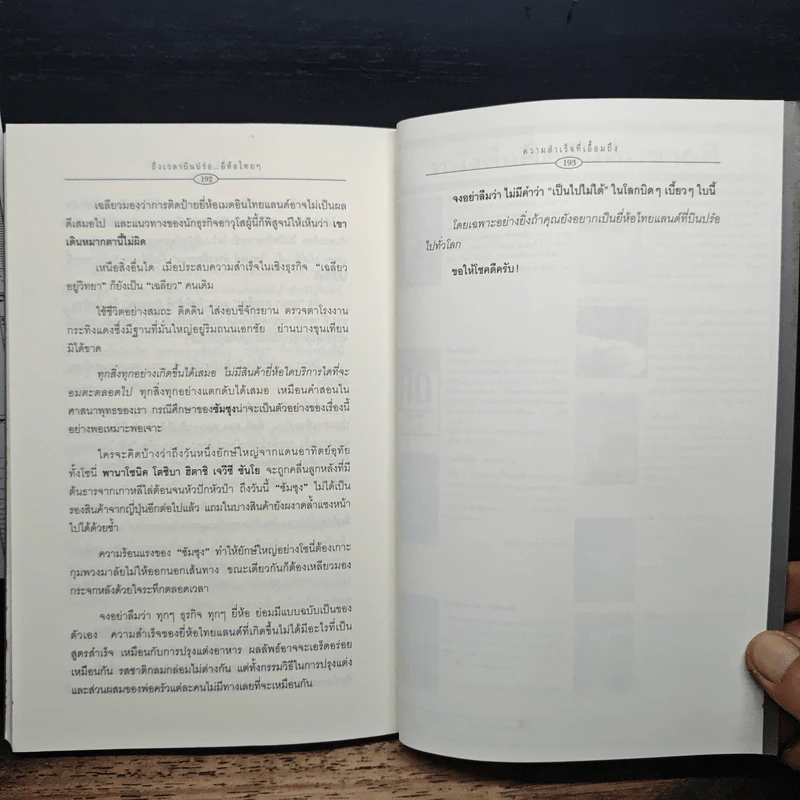 ถึงเวลาบินปร๋อ...ยี่ห้อไทยๆ
192
เฉลียวมองว่าการติดป้ายยี่ห้อเมดอินไทยแลนด์อาจไม่เป็นผล
ดีเสมอไป และแนวทางของนักธุรกิจอาวุโสผู้นี้ก็พิสูจน์ให้เห็นว่า เขา
เดินหมากตานี้ไม่ผิด
เหนือสิ่งอื่นใด เมื่อประสบความสำเร็จในเชิงธุรกิจ “เฉลียว
อยู่วิทยา” ก็ยังเป็น “เฉลียว” คนเดิม
ใช้ชีวิตอย่างสมถะ ติดดิน ใส่งอบขี่จักรยาน ตรวจตาโรงงาน
กระทิงแดงซึ่งมีฐานที่มั่นใหญ่อยู่ริมถนนเอกชัย ย่านบางขุนเทียน
มิได้ขาด
ทุกสิ่งทุกอย่างเกิดขึ้นได้เสมอ ไม่มีสินค้ายี่ห้อใดบริการใดที่จะ
อมตะตลอดไป ทุกสิ่งทุกอย่างแตกดับได้เสมอ เหมือนคำสอนใน
ศาสนาพุทธของเรา กรณีศึกษาของซัมซุงน่าจะเป็นตัวอย่างของเรื่องนี้
อย่างพอเหมาะพอเจาะ
ใครจะคิดบ้างว่าถึงวันหนึ่งยักษ์ใหญ่จากแดนอาทิตย์อุทัย
ทั้งโซนี่ พานาโซนิค โตชิบา ฮิตาชิ เจวีซี ซันโย จะถูกคลื่นลูกหลังที่มี
ต้นธารจากเกาหลีไล่ต้อนจนหัวปักหัวปำ ถึงวันนี้ “ซัมซุง” ไม่ได้เป็น
รองสินค้าจากญี่ปุ่นอีกต่อไปแล้ว แถมในบางสินค้ายังผงาดล้ำแซงหน้า
ไปได้ด้วยซ้ำ
ความร้อนแรงของ “ซัมซุง” ทำให้ยักษ์ใหญ่อย่างโซนี่ต้องเกาะ
กุมพวงมาลัยไม่ให้ออกนอกเส้นทาง ขณะเดียวกันก็ต้องเหลียวมอง
กระจกหลังด้วยใจระทึกตลอดเวลา
จงอย่าลืมว่า ทุกๆ ธุรกิจ ทุกๆ ยี่ห้อ ย่อมมีแบบฉบับเป็นของ
ตัวเอง ความสำเร็จของยี่ห้อไทยแลนด์ที่เกิดขึ้นไม่ได้มีอะไรที่เป็น
สูตรสำเร็จ เหมือนกับการปรุงแต่งอาหาร ผลลัพธ์อาจจะเอร็ดอร่อย
เหมือนกัน รสชาติกลมกล่อมไม่ต่างกัน แต่ทั้งกรรมวิธีในการปรุงแต่ง
และส่วนผสมของพ่อครัวแต่ละคนไม่มีทางเลยที่จะเหมือนกัน
ความสำเร็จที่เอื้อมถึง
193
จงอย่าลืมว่า ไม่มีคำว่า “เป็นไปไม่ได้” ในโลกบิดๆ เบี้ยวๆ ใบนี้
โดยเฉพาะอย่างยิ่งถ้าคุณยังอยากเป็นยี่ห้อไทยแลนด์ที่บินปร๋อ
ไปทั่วโลก
ขอให้โชคดีครับ!